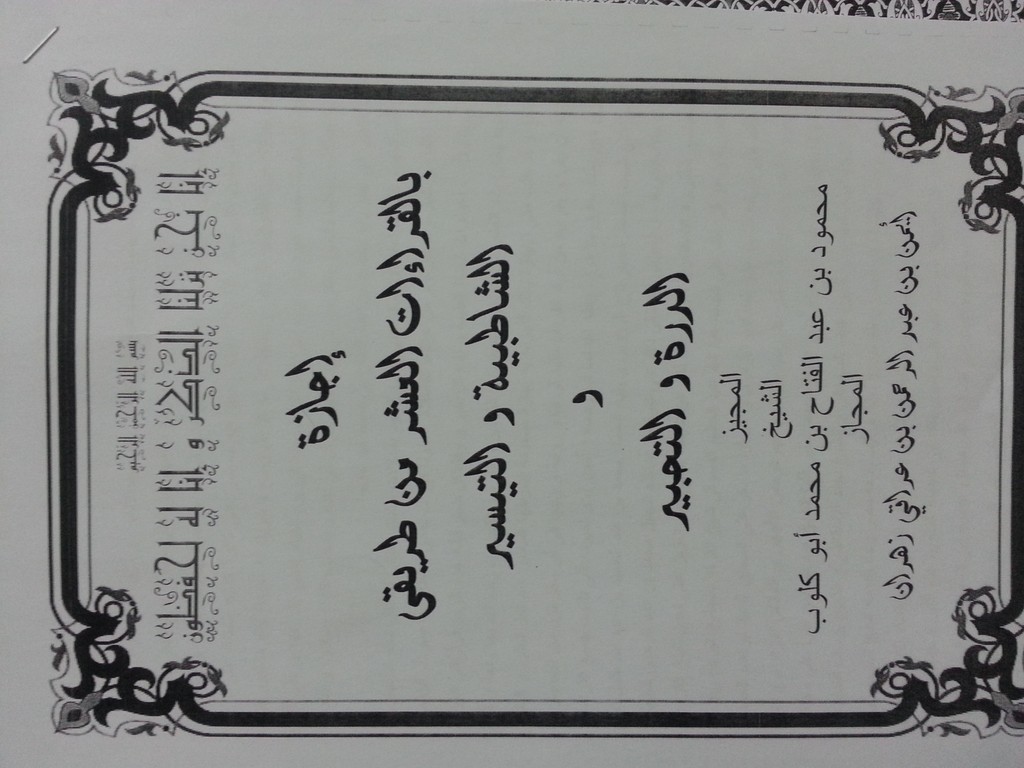 بسم الله الرحمن الرحيم
إنا نحن نزلنا الذكر و إنا له لحافظون
إجازة
بالقراءات العشر من طريقي
الشاطبية و التيسير
و
الدرة و التحبير
المجيز
الشيخ
محمود بن عبد الفتاح بن محمد أبو كلوب
المجاز
أيمن بن عبد الرحمن بن عراقي زهران